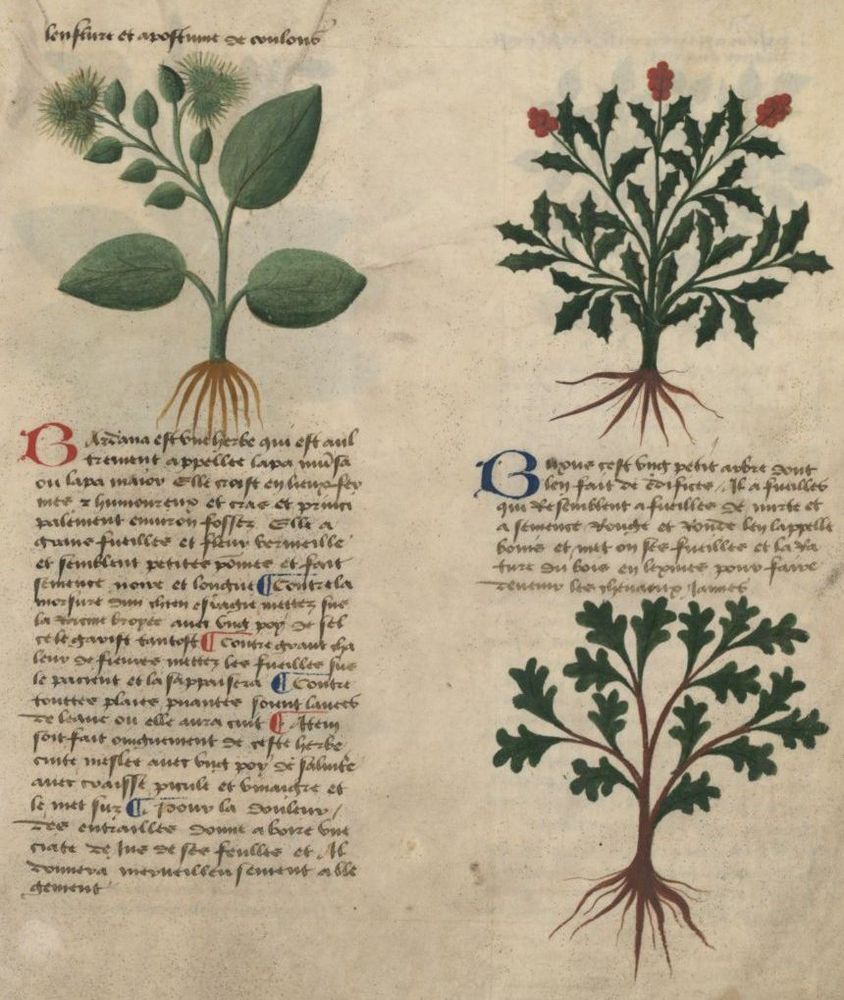 lenflure et apostume de coulons
Bardana est une herbe qui est aul
trement appellee lapa inversa
ou lapa maior Elle croist en lieux fer
mes et humoureux et cras et princi
palement environ fossez Elle a
grans fueilles et fleur vermeille
et semblent petites pomes et fait
semence noire et longue ¶ Contre la
morsure dun chien esragie mettez sus
la racine broyee avec ung poy de sel
ce le garist tantost ¶ Contre grant cha
leur de fievres mettez les fueilles sus
le pacient et la sappaisera ¶ Contre
touttes plaies puantes soient lavees
de leaue ou elle aura cuit ¶ Item
soit fait oinguement de ceste herbe
cuite meslee avec ung poy de
avec craisse picule et vinaigre et
le met sur ¶ Pour la douleur
des entrailles donne a boire une
ciate de jus de ses feulles et Il
donnera merveilleusement alle
gement
Buxus cest ung petit arbre dont
len fait de edifices Il a fueilles
qui resemblent a fueilles de mirte et
a semence rouge et ronde len lappelle
bouis et met on ses fueilles et la ra
ture du bois en lexives pour faire
devenir les cheveaux jaunes